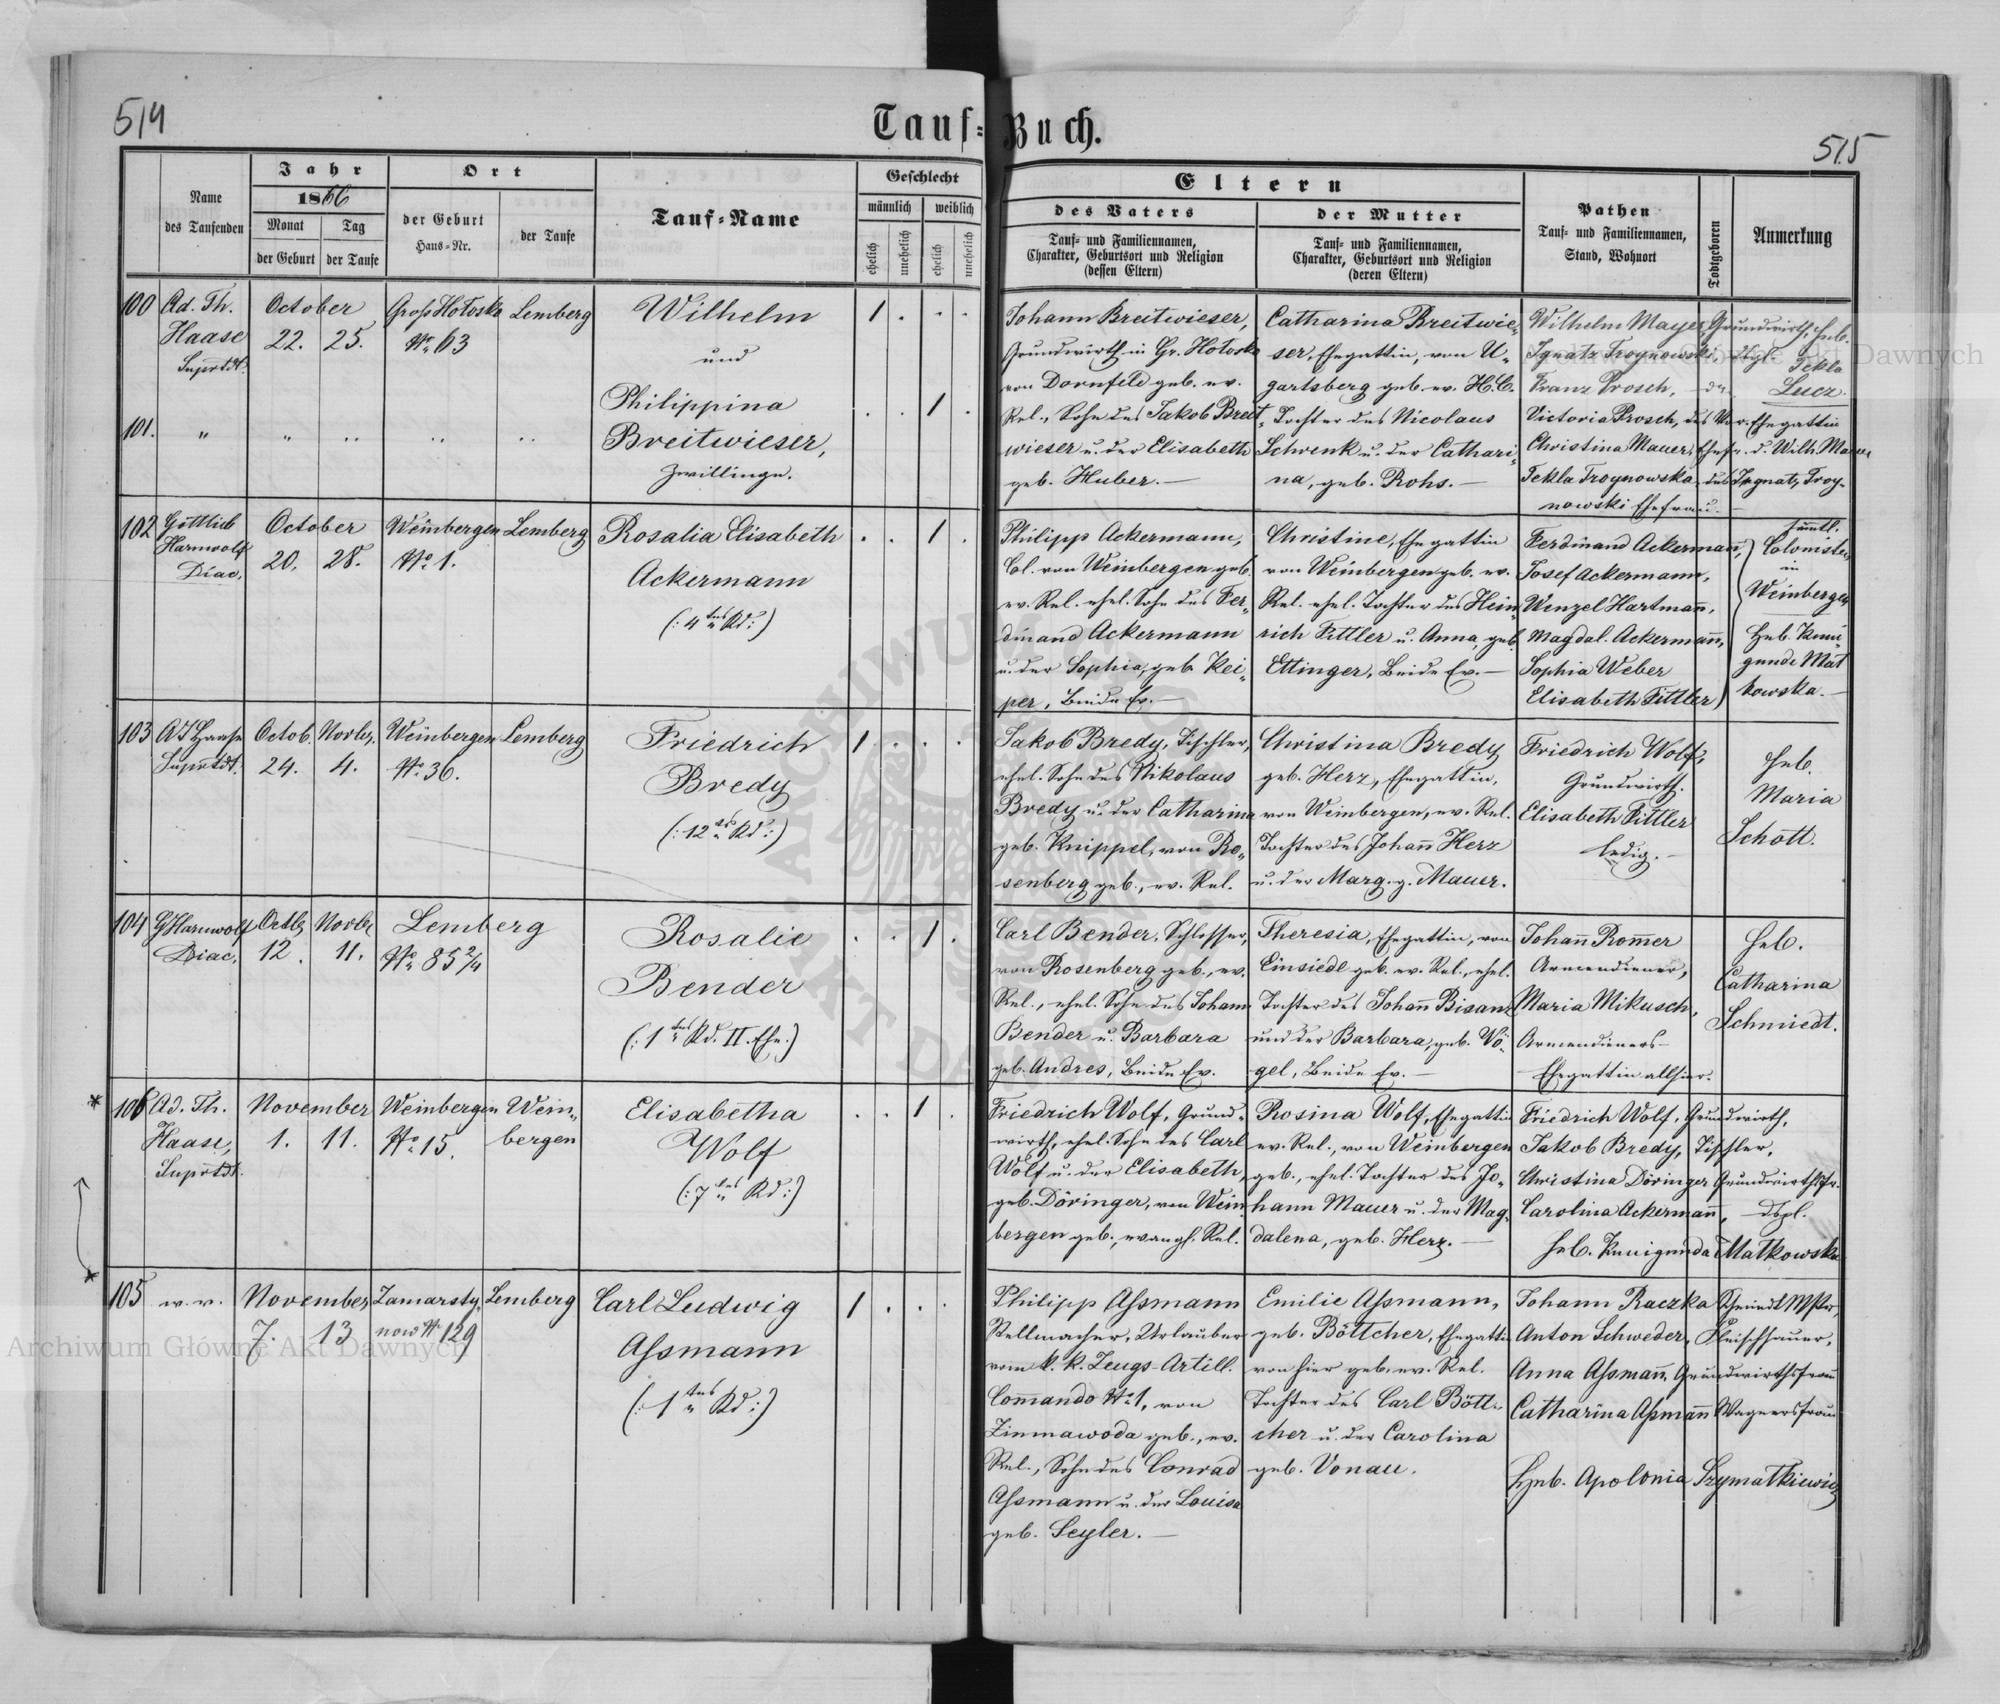 514
Tauf-Buch.
515
Name
des Taufenden
Jahr
1866
Monat
der Geburt
Tag
der Taufe
Ort
der Geburt
Haus-Nr.
der Taufe
Tauf-Name
Geschlecht
männlich
weiblich
ehelich
unehelich
ehelich
unehelich
Eltern
des Vaters
Tauf- und Familiennamen,
Charakter, Geburtsort und Religion
(dessen Eltern)
der Mutter
Tauf- und Familiennamen,
Charakter, Geburtsort und Religion
(deren Eltern)
Pathen
Tauf- und Familiennamen,
Stand, Wohnort
Todtgeboren
Anmerkung
100
Ad. Th.
Haase
Suprtdt.
October
22. 25.
Groß Hołosko
No. 63
Lemberg
Wilhelm
und
1 . . .
101. " " .. .. ..
Philippina
Breitwieser,
Zwillinge.
. . 1 .
Johann Breitwieser,
Grundwirth in Gr. Hołosko
von Dornfeld geb. ev.
Rel., Sohn des Jakob Breit-
wieser u. der Elisabeth
geb. Huber. —
Catharina Breitwie-
ser, Ehegattin, von U-
gartsberg geb. ev. H.C.
Tochter des Nicolaus
Schwenk u. der Cathari-
na, geb. Rohs. —
Wilhelm Mayer, Grundwirth,
Ignatz Troynowski, dtgl.
Franz Prosch, — do
Victoria Prosch, des Vor. Ehegattin
Christina Mauer, Ehefr. d. Wilh. Mauer
Tekla Troynowska, des Ignatz Troy-
nowski Ehefrau. —
Heb.
Tekla
Lucz.
102
Gottlieb
Harnwolf
Diac.
October
20. 28.
Weinbergen
No. 1.
Lemberg
Rosalia Elisabeth
Ackermann
(: 4tes Kd :)
. . 1 .
Philipp Ackermann,
Col. von Weinbergen geb.
ev. Rel. ehel. Sohn des Fer-
dinand Ackermann
u. der Sophia, geb. Kei-
per, Beide Ev. —
Christine, Ehegattin
von Weinbergen geb. ev.
Rel. ehel. Tochter des Hein-
rich Fittler u. Anna, geb.
Ettinger, Beide Ev. —
Ferdinand Ackermann,
Josef Ackermann,
Wenzel Hartmann,
Magdal. Ackermann,
Sophia Weber
Elisabeth Fittler
sämtl.
Colonisten
in
Weinbergen
Heb. Kuni-
gunde Mat
kowska. —
103
A T Haase
Suprtdt.
Octob. Novbr.
24. 4.
Weinbergen
No. 36.
Lemberg
Friedrich
Bredy
(: 12tes Kd :)
1 . . .
Jakob Bredy, Tischler,
ehel. Sohn des Nikolaus
Bredy u. der Catharina
geb. Knippel, von Ro-
senberg geb., ev. Rel.
Christina Bredy
geb. Herz, Ehegattin,
von Weinbergen, ev. Rel.
Tochter des Johann Herz
u. der Marg. g. Mauer.
Friedrich Wolf,
Grundwirth.
Elisabeth Fittler
ledig. —
Heb.
Maria
Schott.
104
G Harnwolf
Diac.
Octb. Novbr
12. 11.
Lemberg
No. 85 2/4
Rosalie
Bender
(: 1tes Kd. II. Ehe.)
. . 1 .
Carl Bender, Schlosser,
von Rosenberg geb., ev.
Rel., ehel. Sohn des Johann
Bender u. Barbara
geb. Andres, Beide Ev.
Theresia, Ehegattin, von
Einsiedl geb. ev. Rel., ehel.
Tochter des Johann Bisanz
und der Barbara, geb. Vö-
gel, Beide Ev. —
Johann Rommer
Armendiener,
Maria Mikusch,
Armendieners-
Ehegattin allhier.
Heb.
Catharina
Schmiedt.
* 106
Ad. Th.
Haase,
Suprtdt.
November
1. 11.
Weinbergen
No. 15.
Wein-
bergen
Elisabetha
Wolf
(: 7tes Kd :)
. . 1 .
Friedrich Wolf, Grund-
wirth, ehel. Sohn des Carl
Wolf u. der Elisabeth,
geb. Döringer, von Wein-
bergen geb., evangl. Rel.
Rosina Wolf, Ehegattin
ev. Rel., von Weinbergen
geb., ehel. Tochter des Jo-
hann Mauer u. der Mag-
dalena, geb. Herz. —
Friedrich Wolf, Grundwirth,
Jakob Bredy, Tischler,
Christina Döringer Grundwirthsfr.
Carolina Ackermann, — dtgl.
Heb. Kunigunda Matkowska
* 105
w. v.
November
7. 13
Zamarsty-
now No. 129
Lemberg
Carl Ludwig
Aßmann
(: 1tes Kd :)
1 . . .
Philipp Aßmann
Stellmacher, Urlauber
vom k. k. Zeugs-Artill.
Commando No. 1, von
Zimnawoda geb., ev.
Rel., Sohn des Conrad
Aßmann u. der Louisa
geb. Seyler. —
Emilie Aßmann,
geb. Böttcher, Ehegattin
von hier geb. ev. Rel.
Tochter des Carl Bött-
cher u. der Carolina
geb. Vonau.
Johann Raczka Schmiedt Mster,
Anton Schweder, Fleischhauer,
Anna Aßmann, Grundwirthsfrau
Catharina Aßmann Wagnersfrau
Heb. Apolonia Szymatkiewicz
Archiwum Główne Akt Dawnych
Archiwum Główne Akt Dawnych